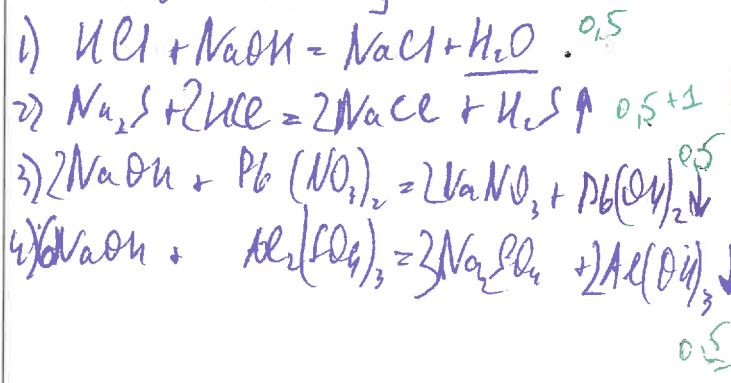 1) HCl + NaOH = NaCl + H₂O . 0,5
2) Na₂S + 2HCl = 2NaCl + H₂S↑ 0,5+1
3) 2NaOH + Pb(NO₃)₂ = 2NaNO₃ + Pb(OH)₂↓ 0,5
4) 6NaOH + Al₂(SO₄)₃ = 3Na₂SO₄ + 2Al(OH)₃↓
0,5